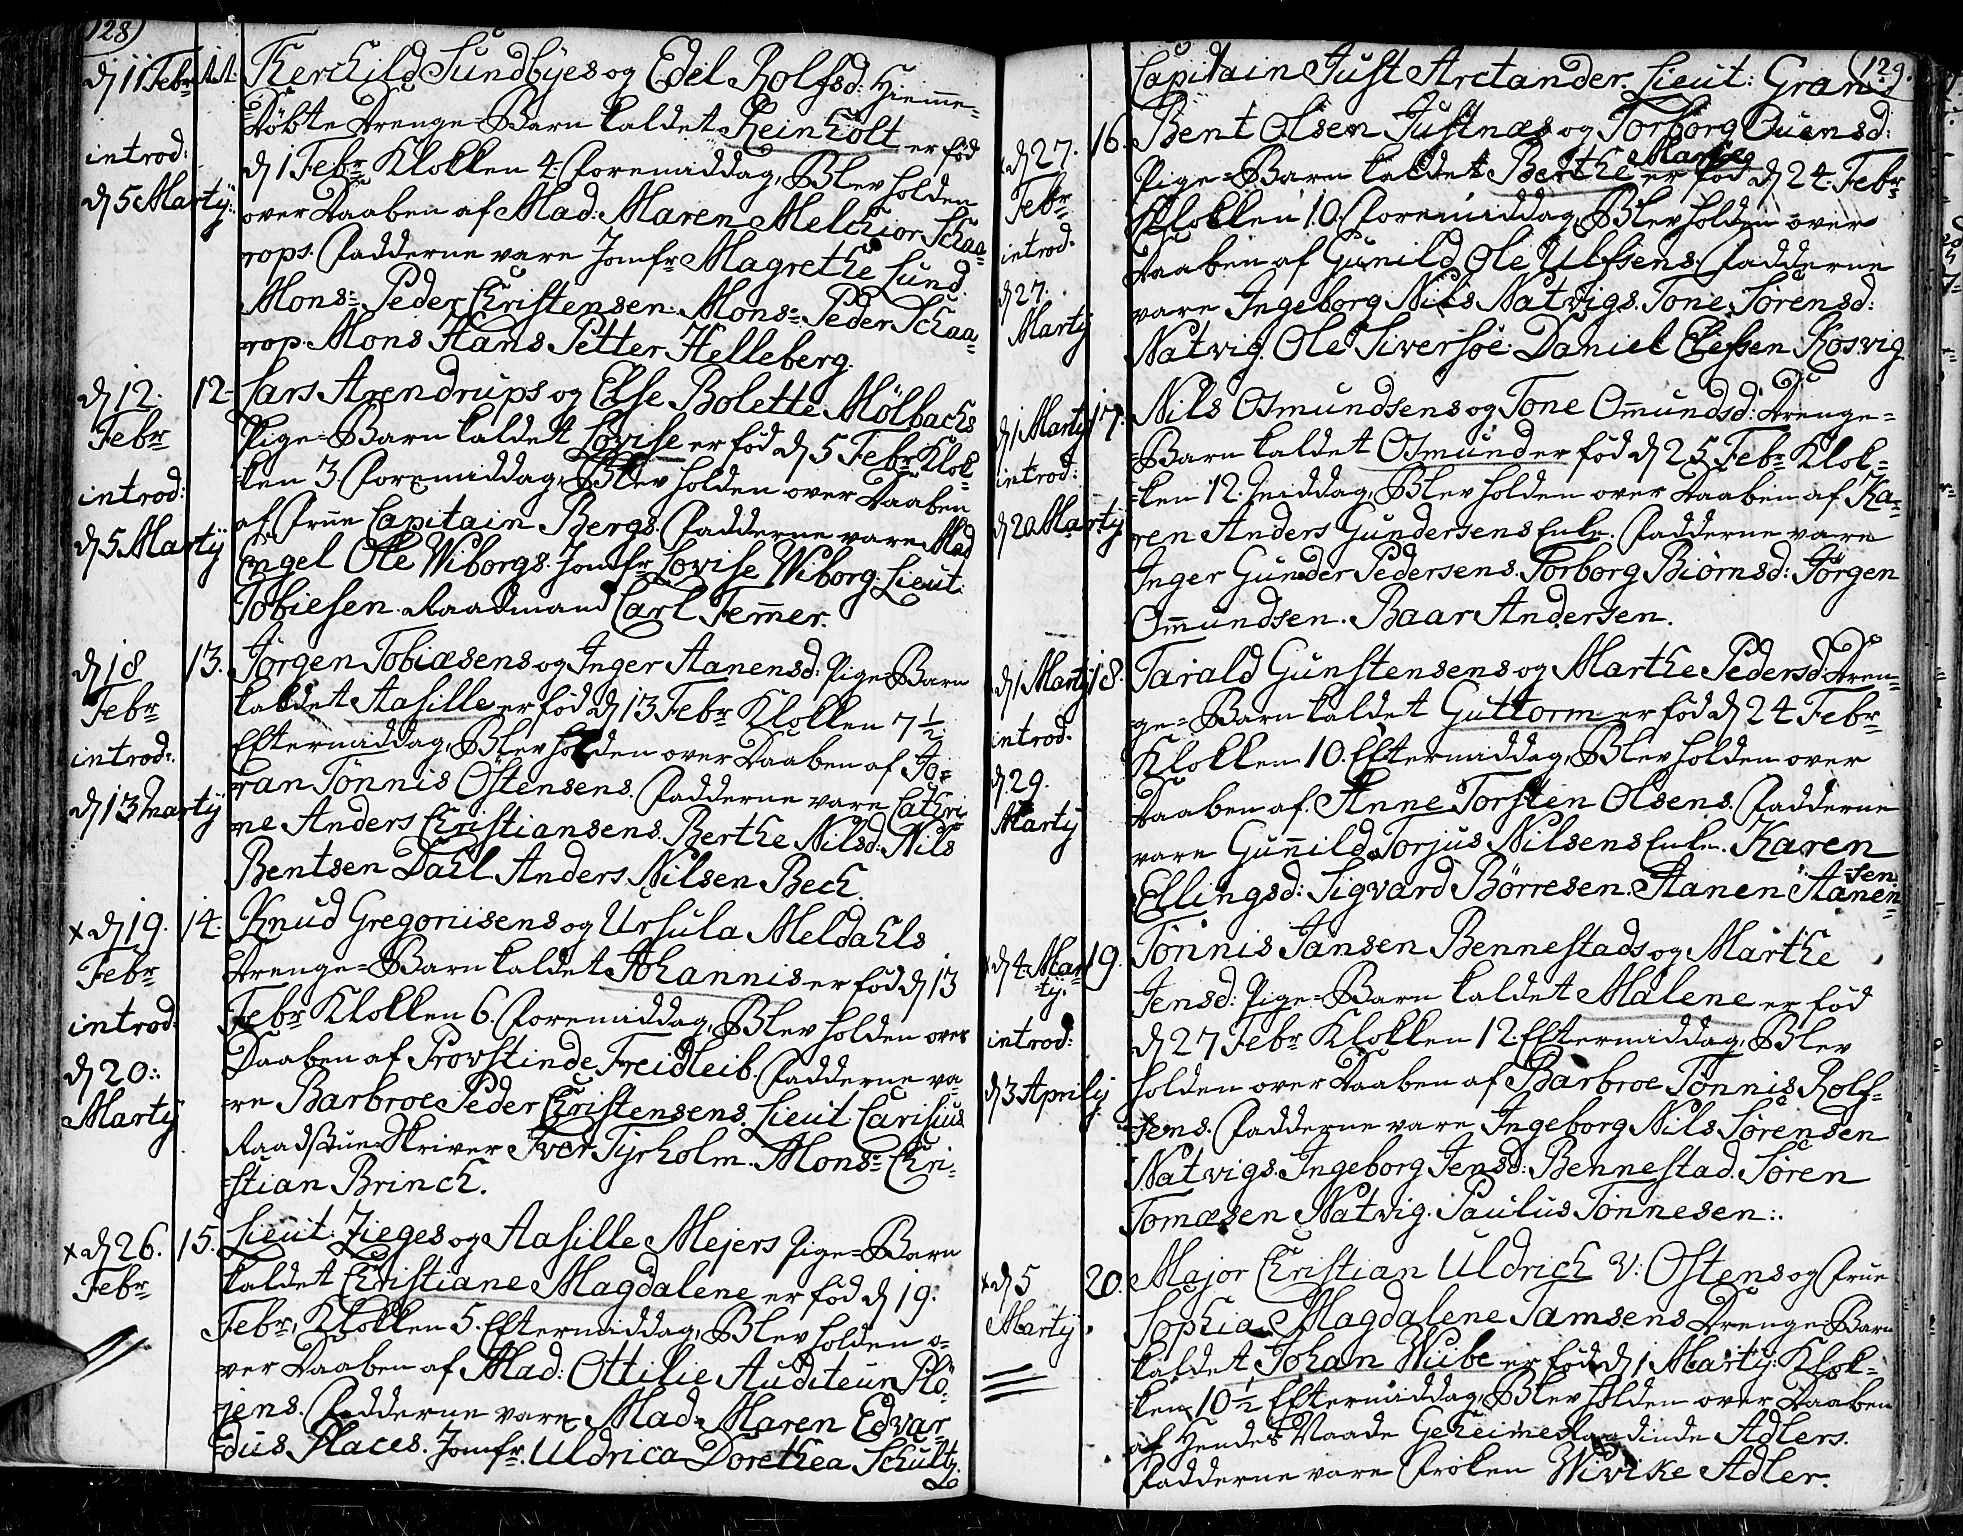 128)
d 11 Febr 11. Kerchild Sundbÿes og Edel Rolfsd: Hieme=
Döbte Drenge Barn kaldet Reinholt er föd
introd: d 1 Febr Klokken 4. Formiddag, Blev holden
d 5 Martÿ: over Daaben af Mad: Maren Melchior Schaa=
rops. Fadderne vare Jomfr Magrethe Lund.
Mons= Peder Christensen. Mons= Peder Schaa=
rop. Mons Hans Petter Helleberg.
d 12. Febr 12. Lars Arendrups og Else Bolette Mölbachs
Pige=Barn kaldet Lovise er föd d 5 Febr Klok=
introd: ken 3. Foremiddag, Blev holden over Daaben
d 5 Martÿ af Frue Capitain Bergs. Fadderne vare Mad
Engel Ole Wiborgs. Jomfr Lovise Wiborg. Lieut:
Tobiesen. Raadmand Carl Femer.
d 18 Febr 13. Jörgen Tobiæsens og Inger Aanensd: Pige=Barn
kaldet Aasille er föd d 13 Febr Klokken 7 1/2
introd: Eftermiddag, Blev holden over Daaben af Jo=
d 13 Martÿ ran Tönnis Östensens. Fadderne vare Cathri
ne Anders Christiansens. Berthe Nilsd: Nils
Bentsen Dahl. Anders Nilsen Bech.
x d 19. Febr 14. Knud Gregoriisens og Ursula Meldahls
Drenge=Barn kaldet Johannis er föd d 13
introd: Febr Klokken 6. Foremiddag, Blev holden over
d 20: Daaben af Provstinde Freidleib. Fadderne va=
Martÿ re Barbroe Peder Christensens. Lieut: Carisius
Raadstue Skriver Iver Tyrholm. Mons= Chri=
stian Brinch.
x d 26. Febr 15. Lieut: Zieges og Aasille Mejers Pige=Barn
kaldet Christiane Magdalene er föd d 19.
Febr, Klokken 5. Eftermiddag, Blev holden o=
ver Daaben af Mad: Ottilie Auditeur Plö
jens. Fadderne vare Mad= Maren Edvar=
dus Places. Jomfr. Uldrica Dorethea Schultz
129.
Capitain Just Arctander. Lieut: Gran
x d 27. Febr 16. Bent Olsen Justnæs og Torborg Ouensd:
Pige=Barn kaldet Berthe Marthe er föd d 24. Febr
Klokken 10. Foremiddag, Blev holden over
introd. Daaben af Gunild Ole Ulfsens. Fadderne
d 27. vare Ingeborg Nils Natvigs. Tone Sörensd:
Martÿ Natvig. Ole Siversöe. Daniel Elefsen Kosvig.
d 1 Martÿ 17. Nils Osmundsens og Tone Omundsd: Drenge=
Barn kaldet Osmund er föd d 25 Febr Klok=
introd: ken 12. Middag, Blev holden over Daaben af Ka=
d 20 Martÿ ren Anders Gundersens Enke. Fadderne vare
Inger Gunder Pedersens. Torborg Biörnsd: Jörgen
Omundsen. Baar Andersen.
d 1 Martÿ 18. Tarald Gunstensens og Marthe Pedersd: Dren=
ge=Barn kaldet Guttorm er föd d 24 Febr
introd. Klokken 10. Eftermiddag, Blev holden over
d 29. Daaben af Anne Torsten Olsens. Fadderne
Martÿ vare Gunild Torjus Nilsens Enke. Karen
Ellingsd: Sigvard Börresen. Aanen Aanen=
sen
x d 4. Mar=tÿ. 19. Tönnis Jansen Bennestads og Marthe
Jensd: Pige=Barn kaldet Malene er föd
introd: d 27 Febr Klokken 12. Eftermiddag, Blev
d 3 Aprilÿ holden over Daaben af Barbroe Tönnis Rolf=
sens. Fadderne vare Ingeborg Nils Sörensen
Natvigs. Ingeborg Jensd: Bennestad. Sören
Tomæsen Natvig. Paulus Tönnesen:.
x d 5 Martÿ. 20. Major Christian Uldrich V: Ostens og Frue
Sophia Magdalene Samsens Drenge Barn
kaldet Johan Wiibe er föd d 1 Martÿ. Klok=
ken 10 1/2 Eftermiddag, Blev holden over Daaben
af Hendes Naade Geheime Raadinde Adlers.
Fadderne vare Fröken Wivike Adler.